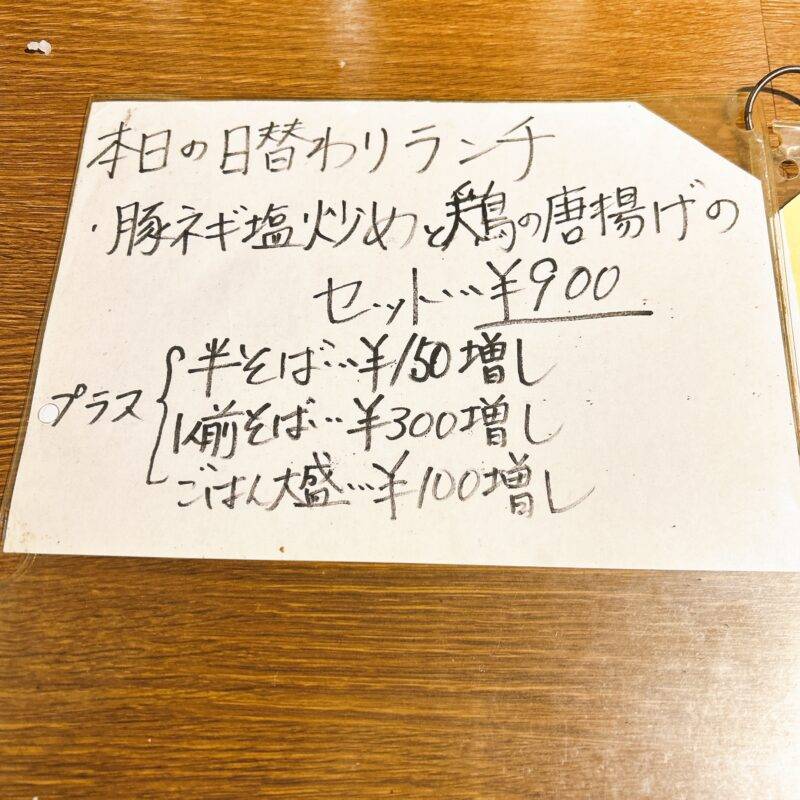 本日の日替わりランチ
・豚ネギ塩炒めと鶏の唐揚げの
セット…¥900
プラス
半そば…¥150増し
1人前そば…¥300増し
ごはん大盛…¥100増し